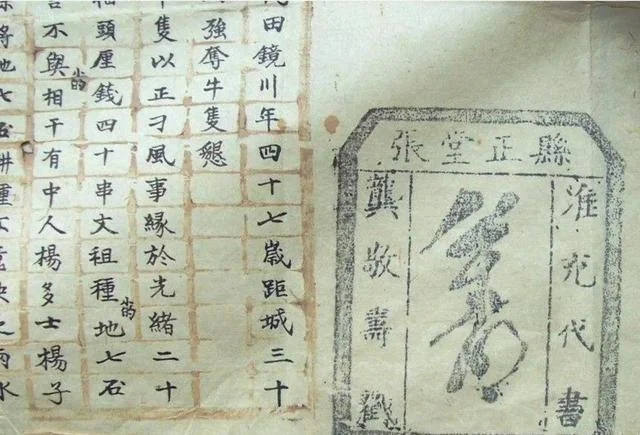 縣正堂張
准充代書
龔敬壽戳
田鏡川年四十七歲距城三十
強奪牛隻懇
隻以正刁風事緣於光緒二十
頭厘錢四十串文祖種小的地七石
不與小的相干有中人楊多士楊子
將地七石耕種
雨水